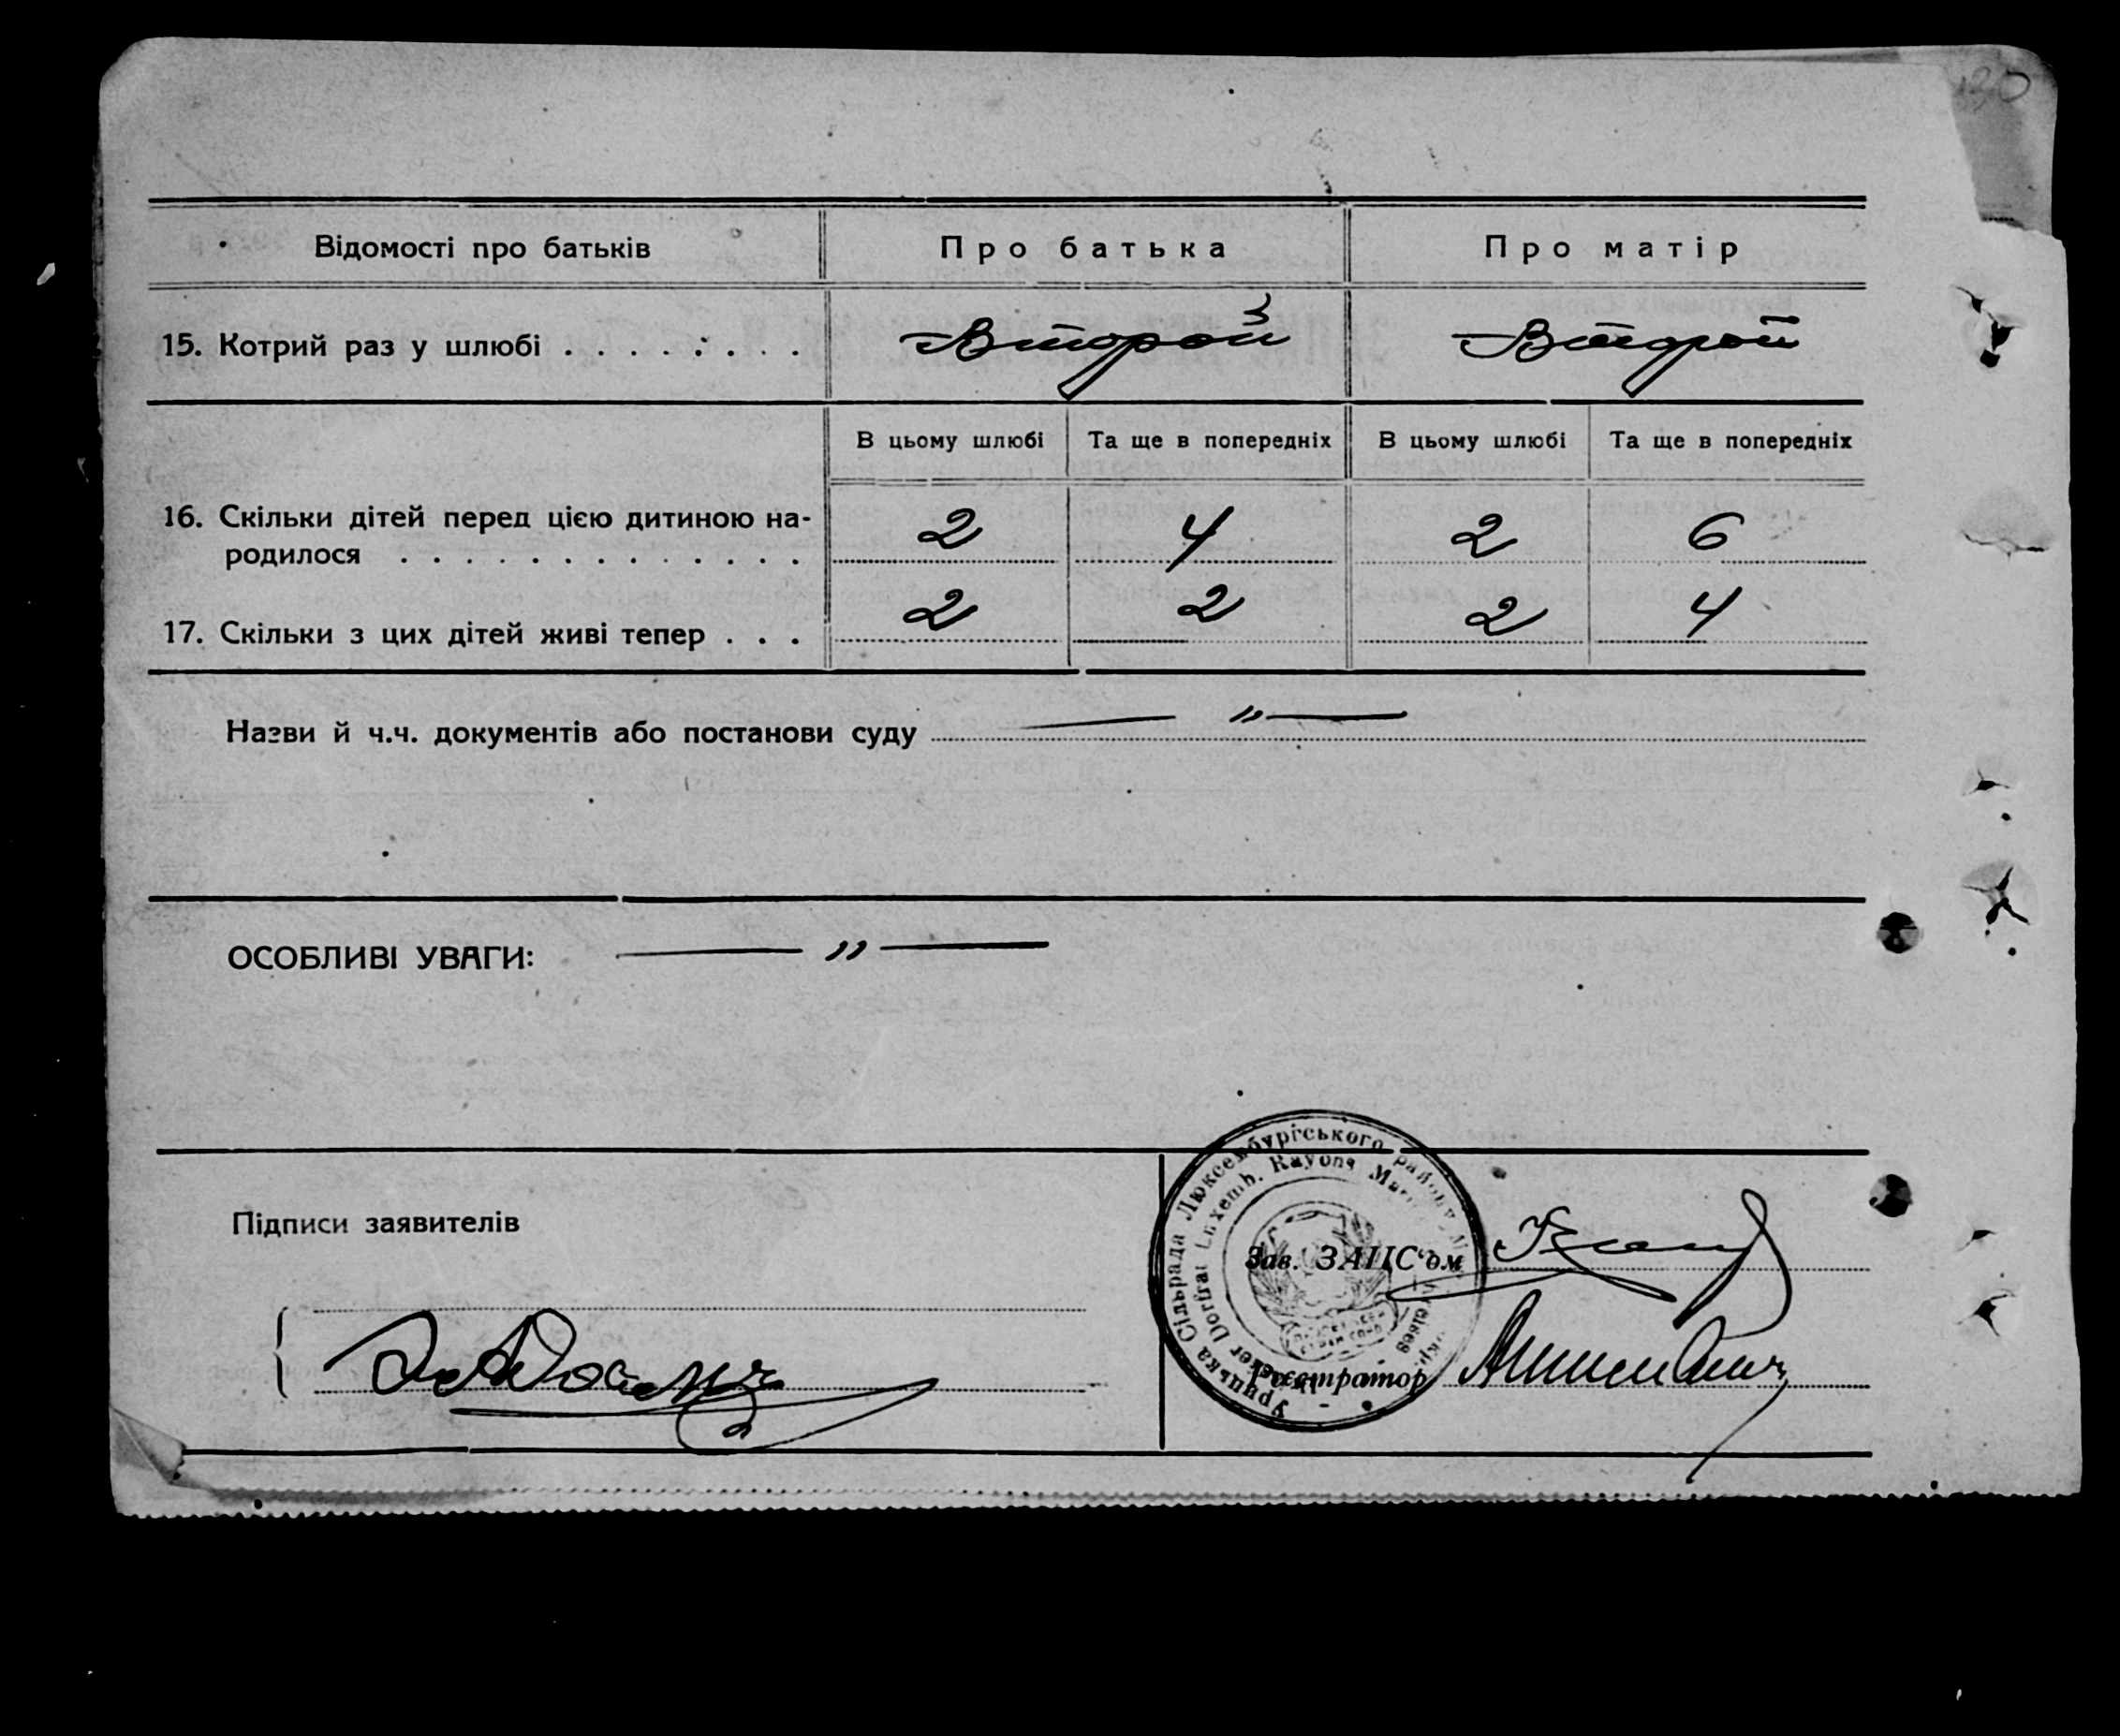 130
Відомості про батьків Про батька Про матір
15. Котрий раз у шлюбі . . . . . . . . Второй Второй
В цьому шлюбі Та ще в попередніх В цьому шлюбі Та ще в попередніх
16. Скільки дітей перед цією дитиною на-
родилося . . . . . . . . . . . . . 2 4 2 6
17. Скільки з цих дітей живі тепер . . . 2 2 2 4
Назви й ч.ч. документів або постанови суду — „ —
ОСОБЛИВІ УВАГИ: — „ —
Підписи заявителів
Зав. ЗАЦС'ом
Реєстратор
Сільрада Люксембургіського району
Luxemb. Rayons